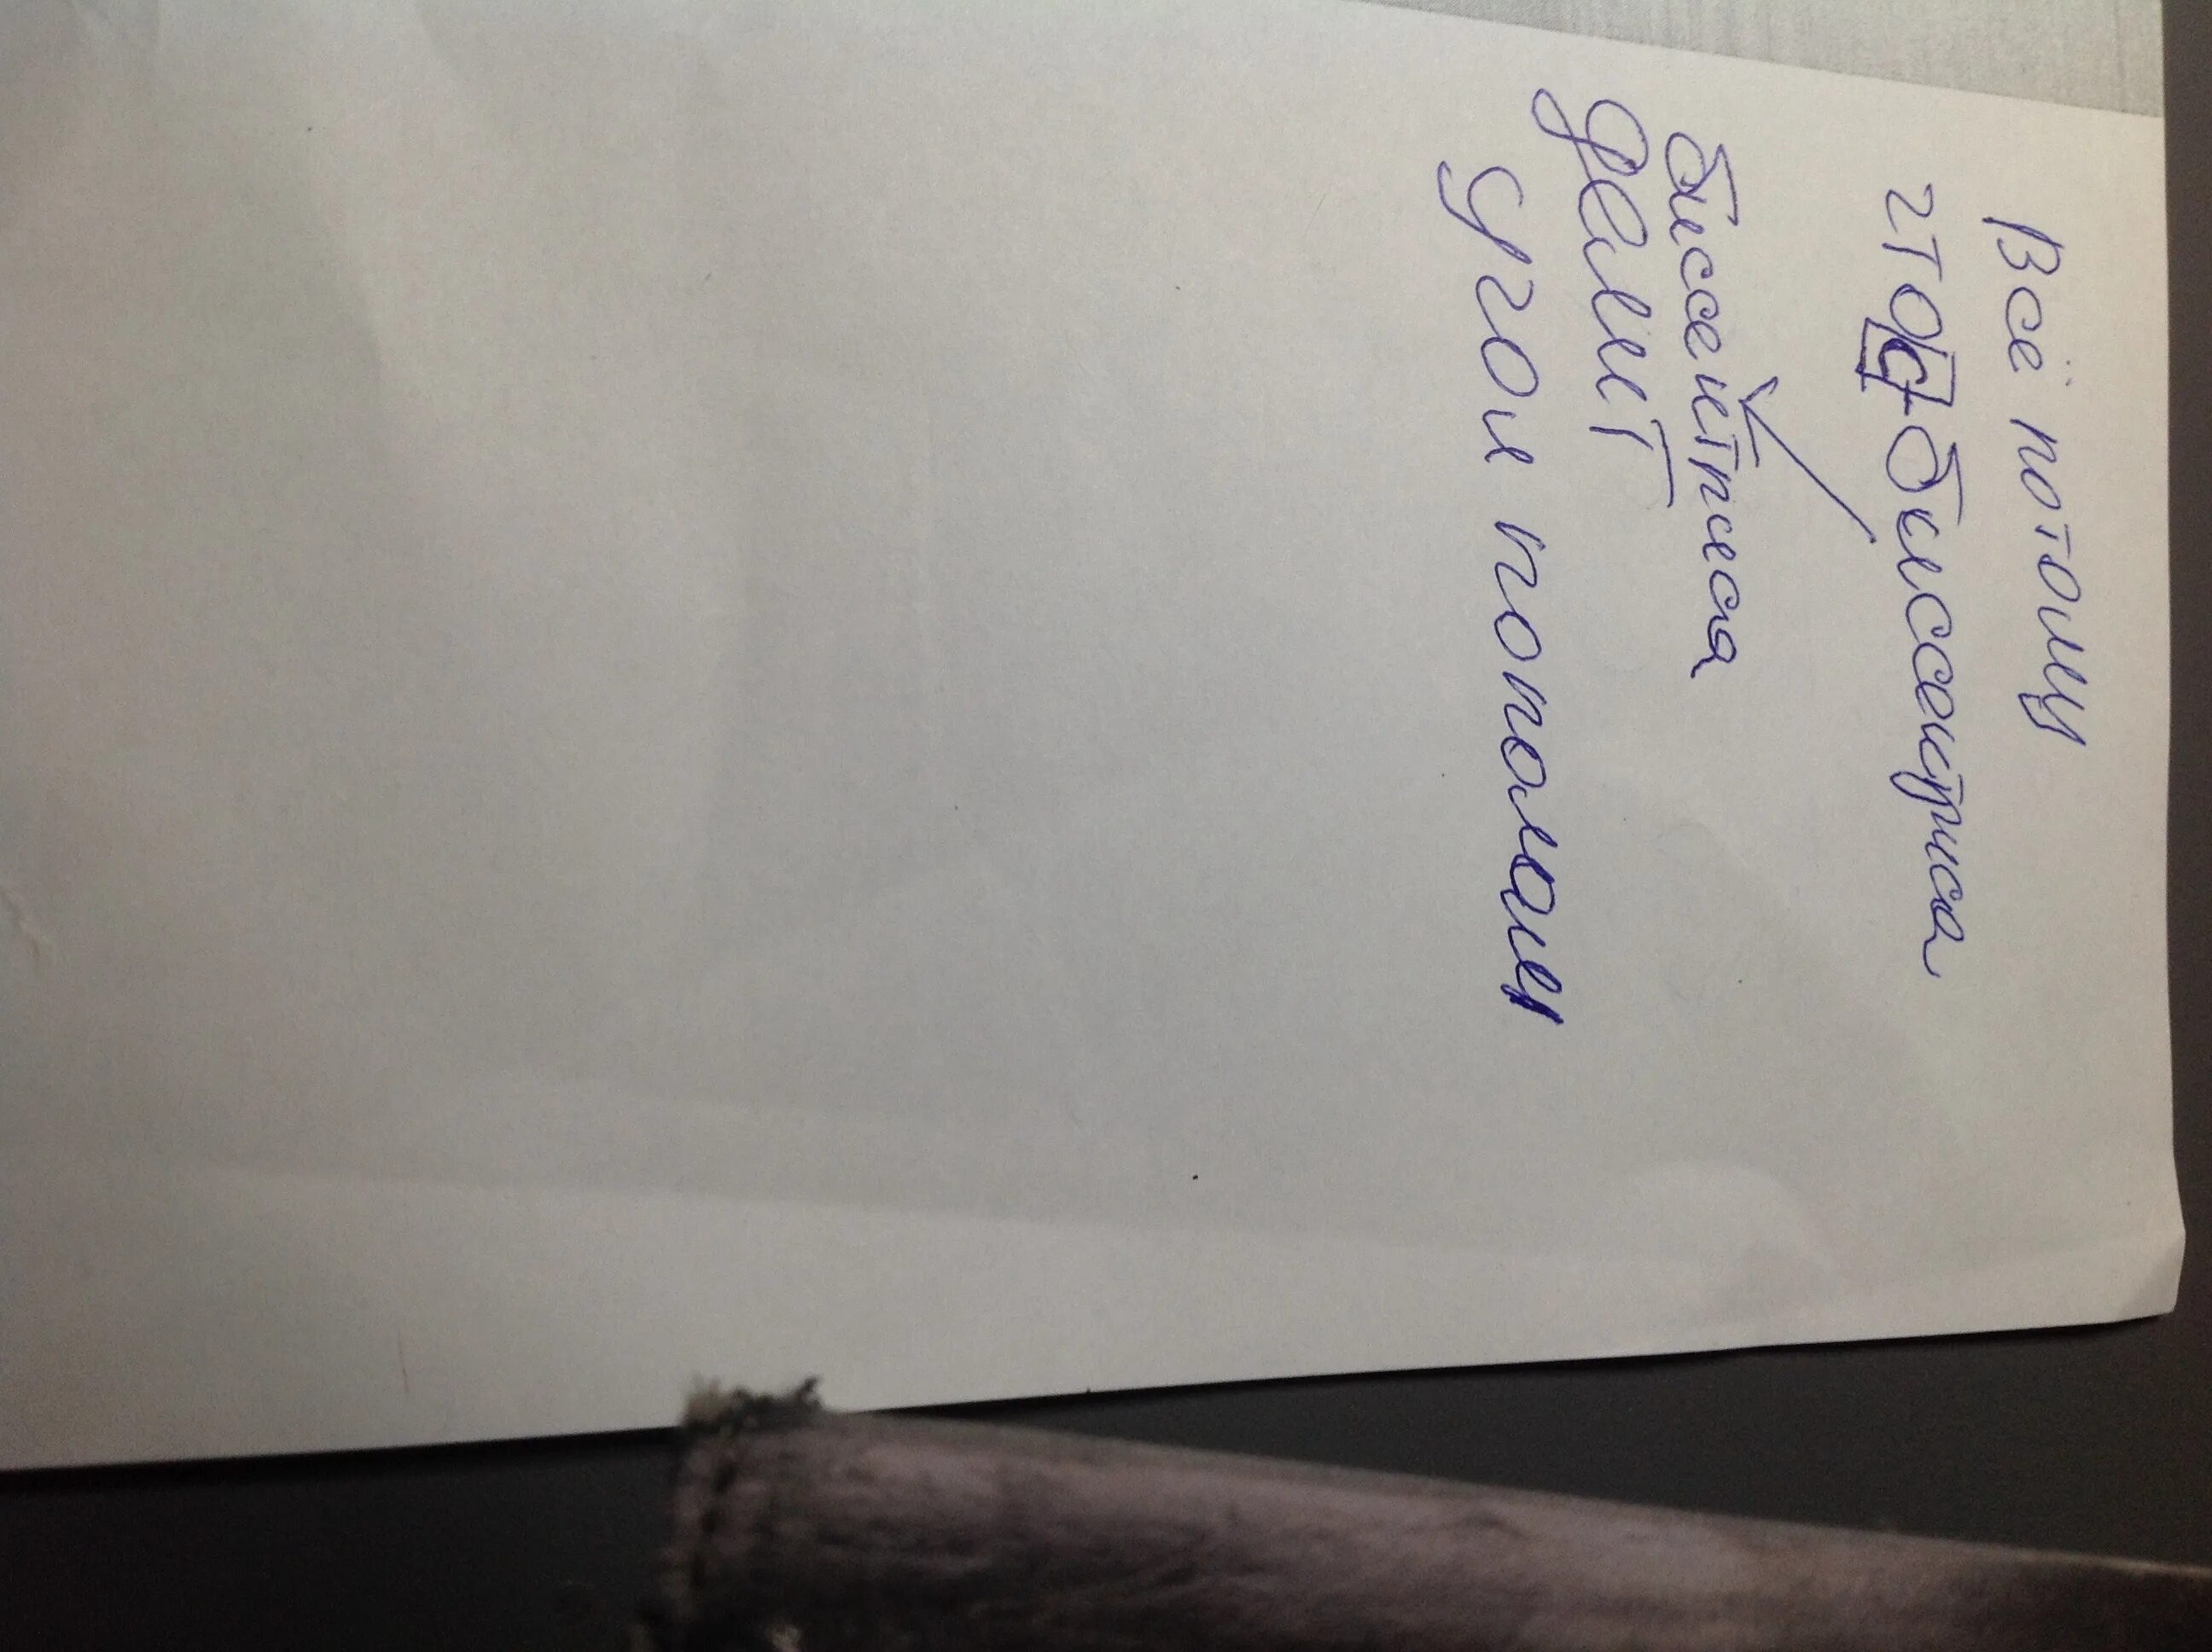 Всё потому
что С - биссектриса
биссектриса
делит
угол пополам